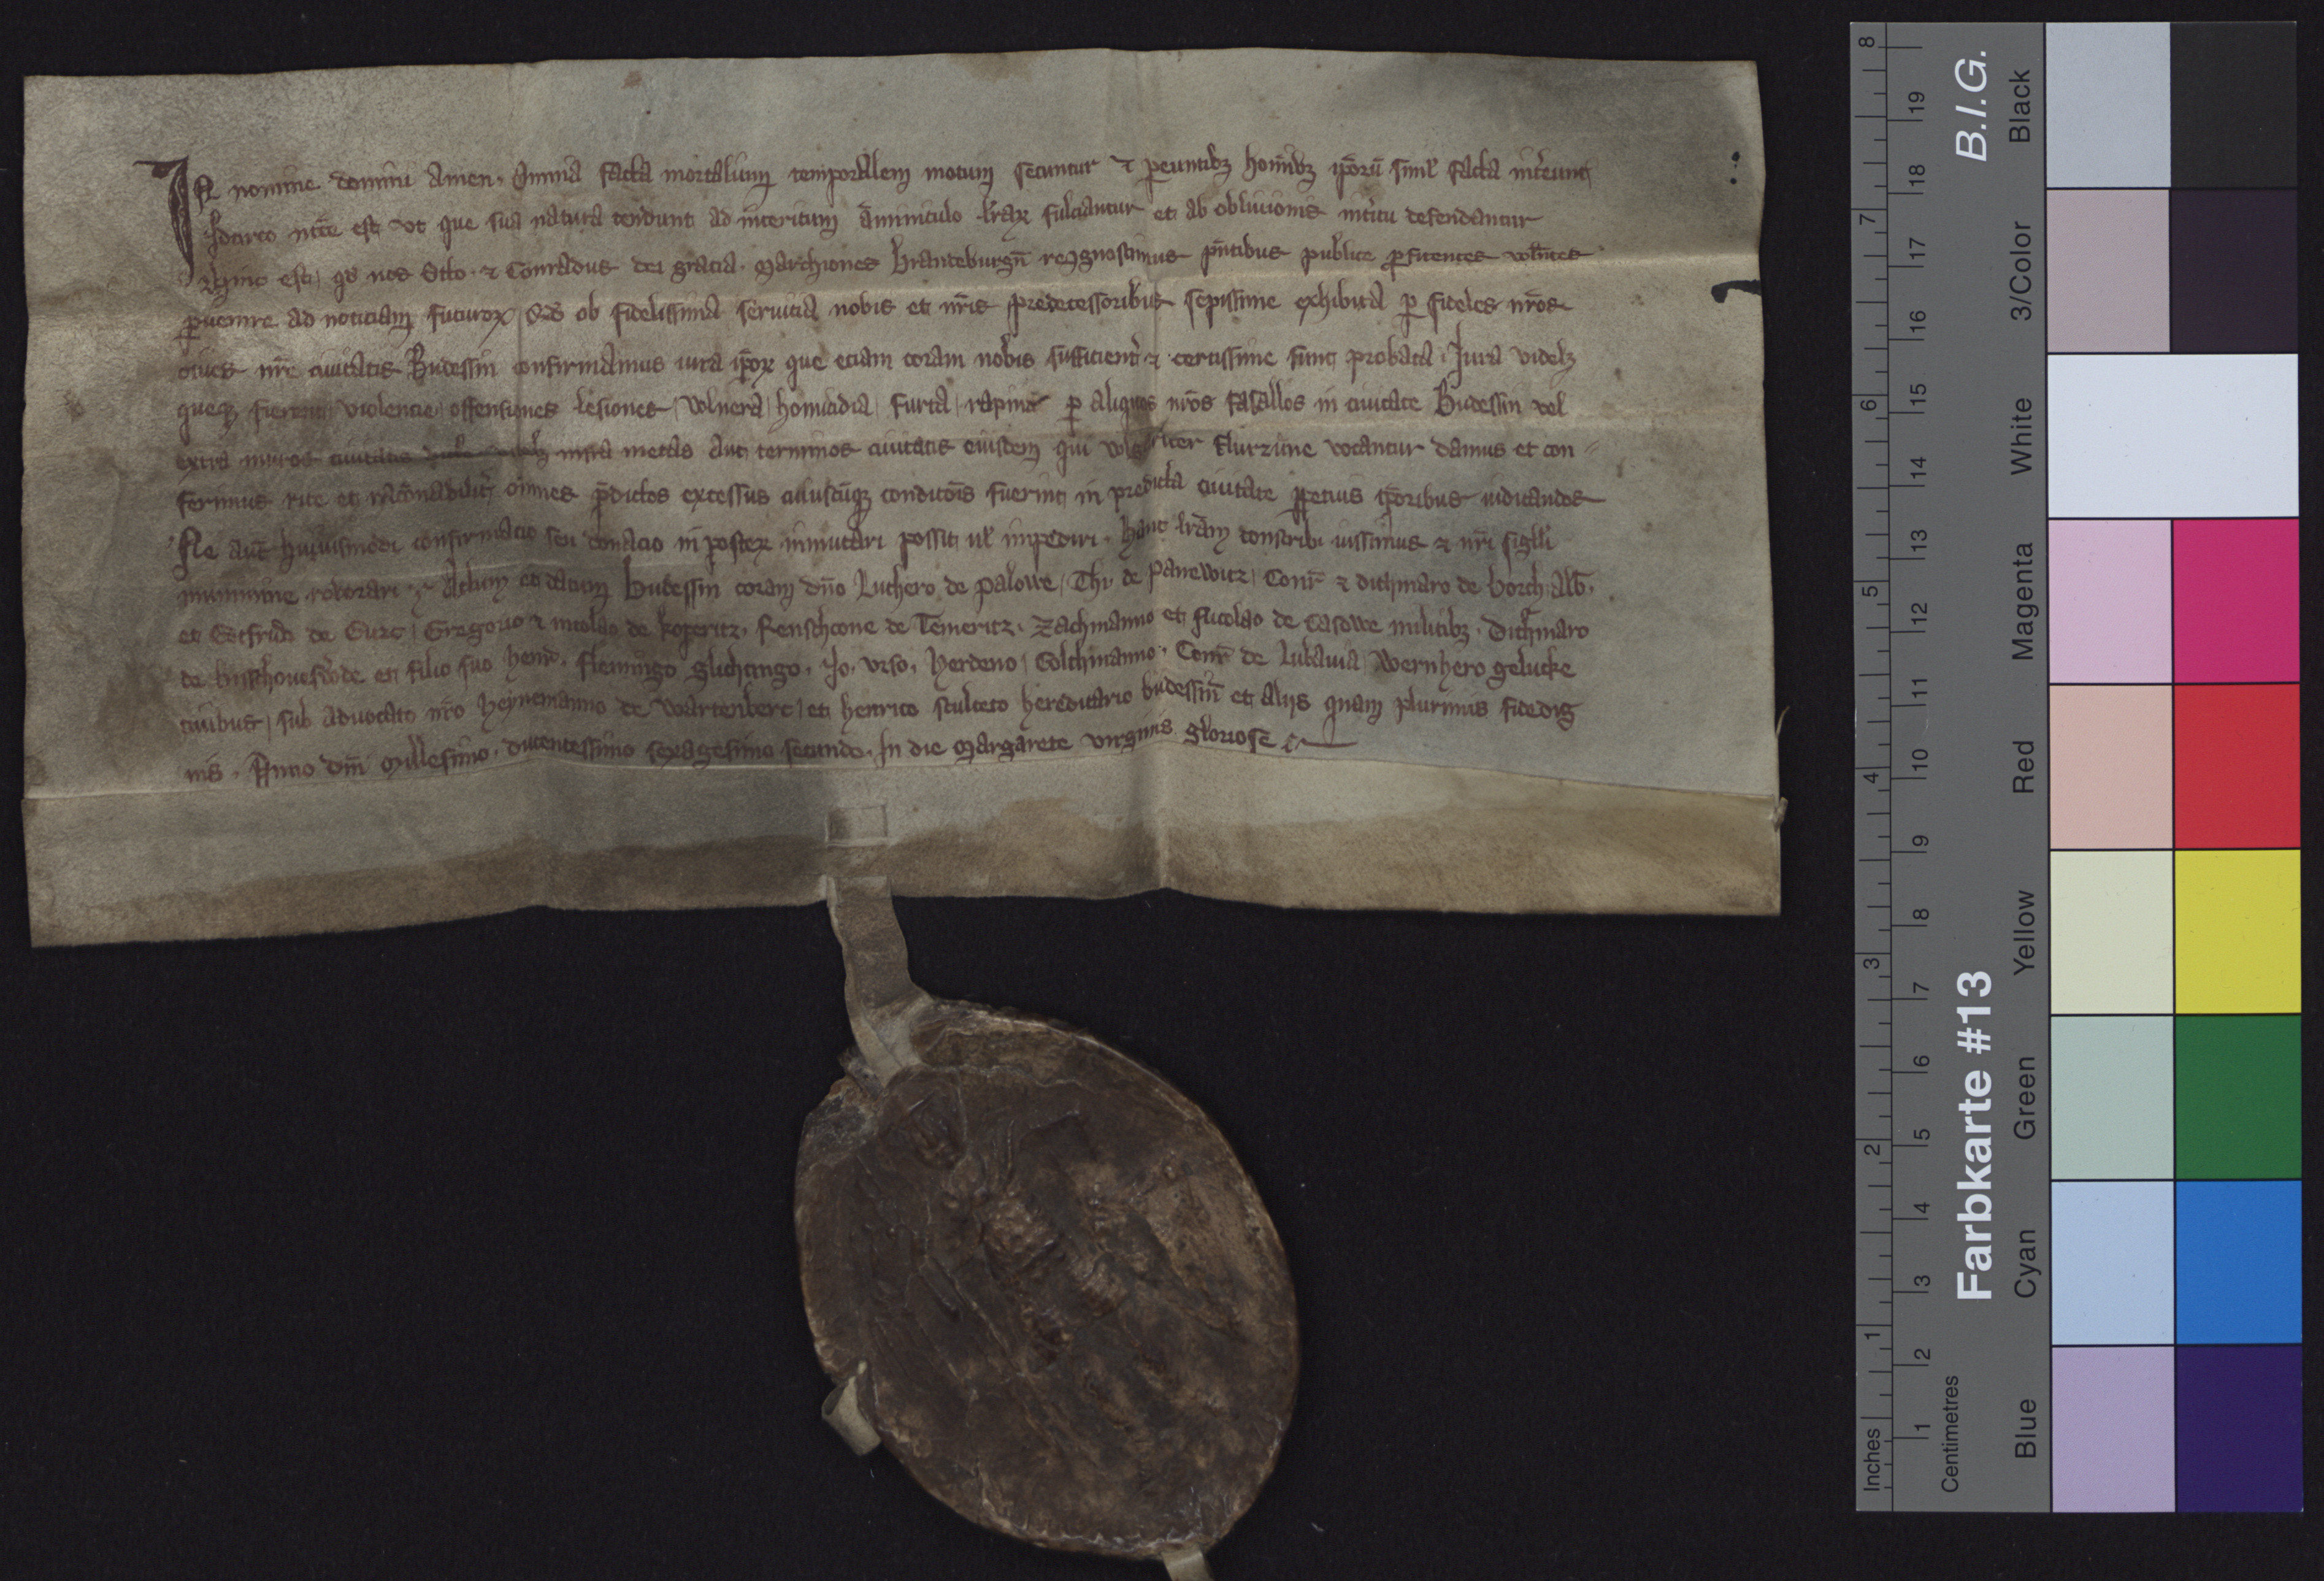 In nomine domini Amen. Omnia facta mortalium temporalem motum secuntur ⁊ pereuntibꝫ homībꝫ ip̄orū simīl facta intereunt
Idcirco ncc̄e est vt que sua natura tendunt ad interitum āminiculo lr̄aꝝ fulciantur et ab obliuionis int̓itu defendantur
Hinc est, qd nos Otto ⁊ Conradus dei gracia. Marchiones Brandeburgn̄ recognoscimus pn̄tibus publice ꝓfitentes volētes
ꝑuenire ad noticiam futuroꝝ, qd ob fidelissima seruicia nobis et nr̄is predecessoribus sepissime exhibita ꝑ fideles nr̄os
ciues nr̄e ciuitatis Budessin confirmamus iura ip̄oꝝ que eciam coram nobis sufficient̓ ⁊ certissime sunt probata. Jura videlꝫ
quecꝫ fierent, violencie, offensiones lesiones, volnera, homicidia, furta, rapine ꝑ aliquos nr̄os fasallos in ciuitate Budessin vel
extra muros ciuitatis infra metas aut terminos ciuitatis eiusdem qui volgariter flurzune vocantur damus et con-
ferimus rite et racōnabilit̓ om̄nes p̄dictos excessus cuiuscūqꝫ condicōis fuerint in predicta ciuitate ꝑpetuis tp̄oribus iudicandos
Ne aut̄ huiusmodi confirmacio seu donacio in posteꝝ inmutari possit ul̓ impediri. Hanc lrām conscribi iussimus ⁊ nr̄i sigilli
munimine roborari. Actum et datum Budessin coram dn̄o Luthero de Palowe, Thi. de Panewitz, Conr̄ ⁊ dithmaro de Borch, alb̄.
et Gotfrido de Gurc, Gregorio ⁊ nicolao de koperitz, Renschone de Temeritz. Zachmanno et nicolao de Casowe militibꝫ. Dithmaro
de bisschoueswrde et filio suo henr̄. flemingo glichingo. Jo. vrso, herdeno, Goltmanno. Conr̄ de Lubauia, Wernhero gelucke
ciuibus, sub aduocato nr̄o heynemanno de Wartenberc, et henrico sculteto hereditario budessin̄ et alijs quam plurimis fidedig
nis. Anno dn̄i Millesimo. ducentessimo sexagesimo secundo. In die Margarete virginis gloriose
Inches
1
2
3
4
5
6
7
8
Centimetres
1
2
3
4
5
6
7
8
9
10
11
12
13
14
15
16
17
18
19
Farbkarte #13
B.I.G.
Blue
Cyan
Green
Yellow
Red
Magenta
White
3/Color
Black